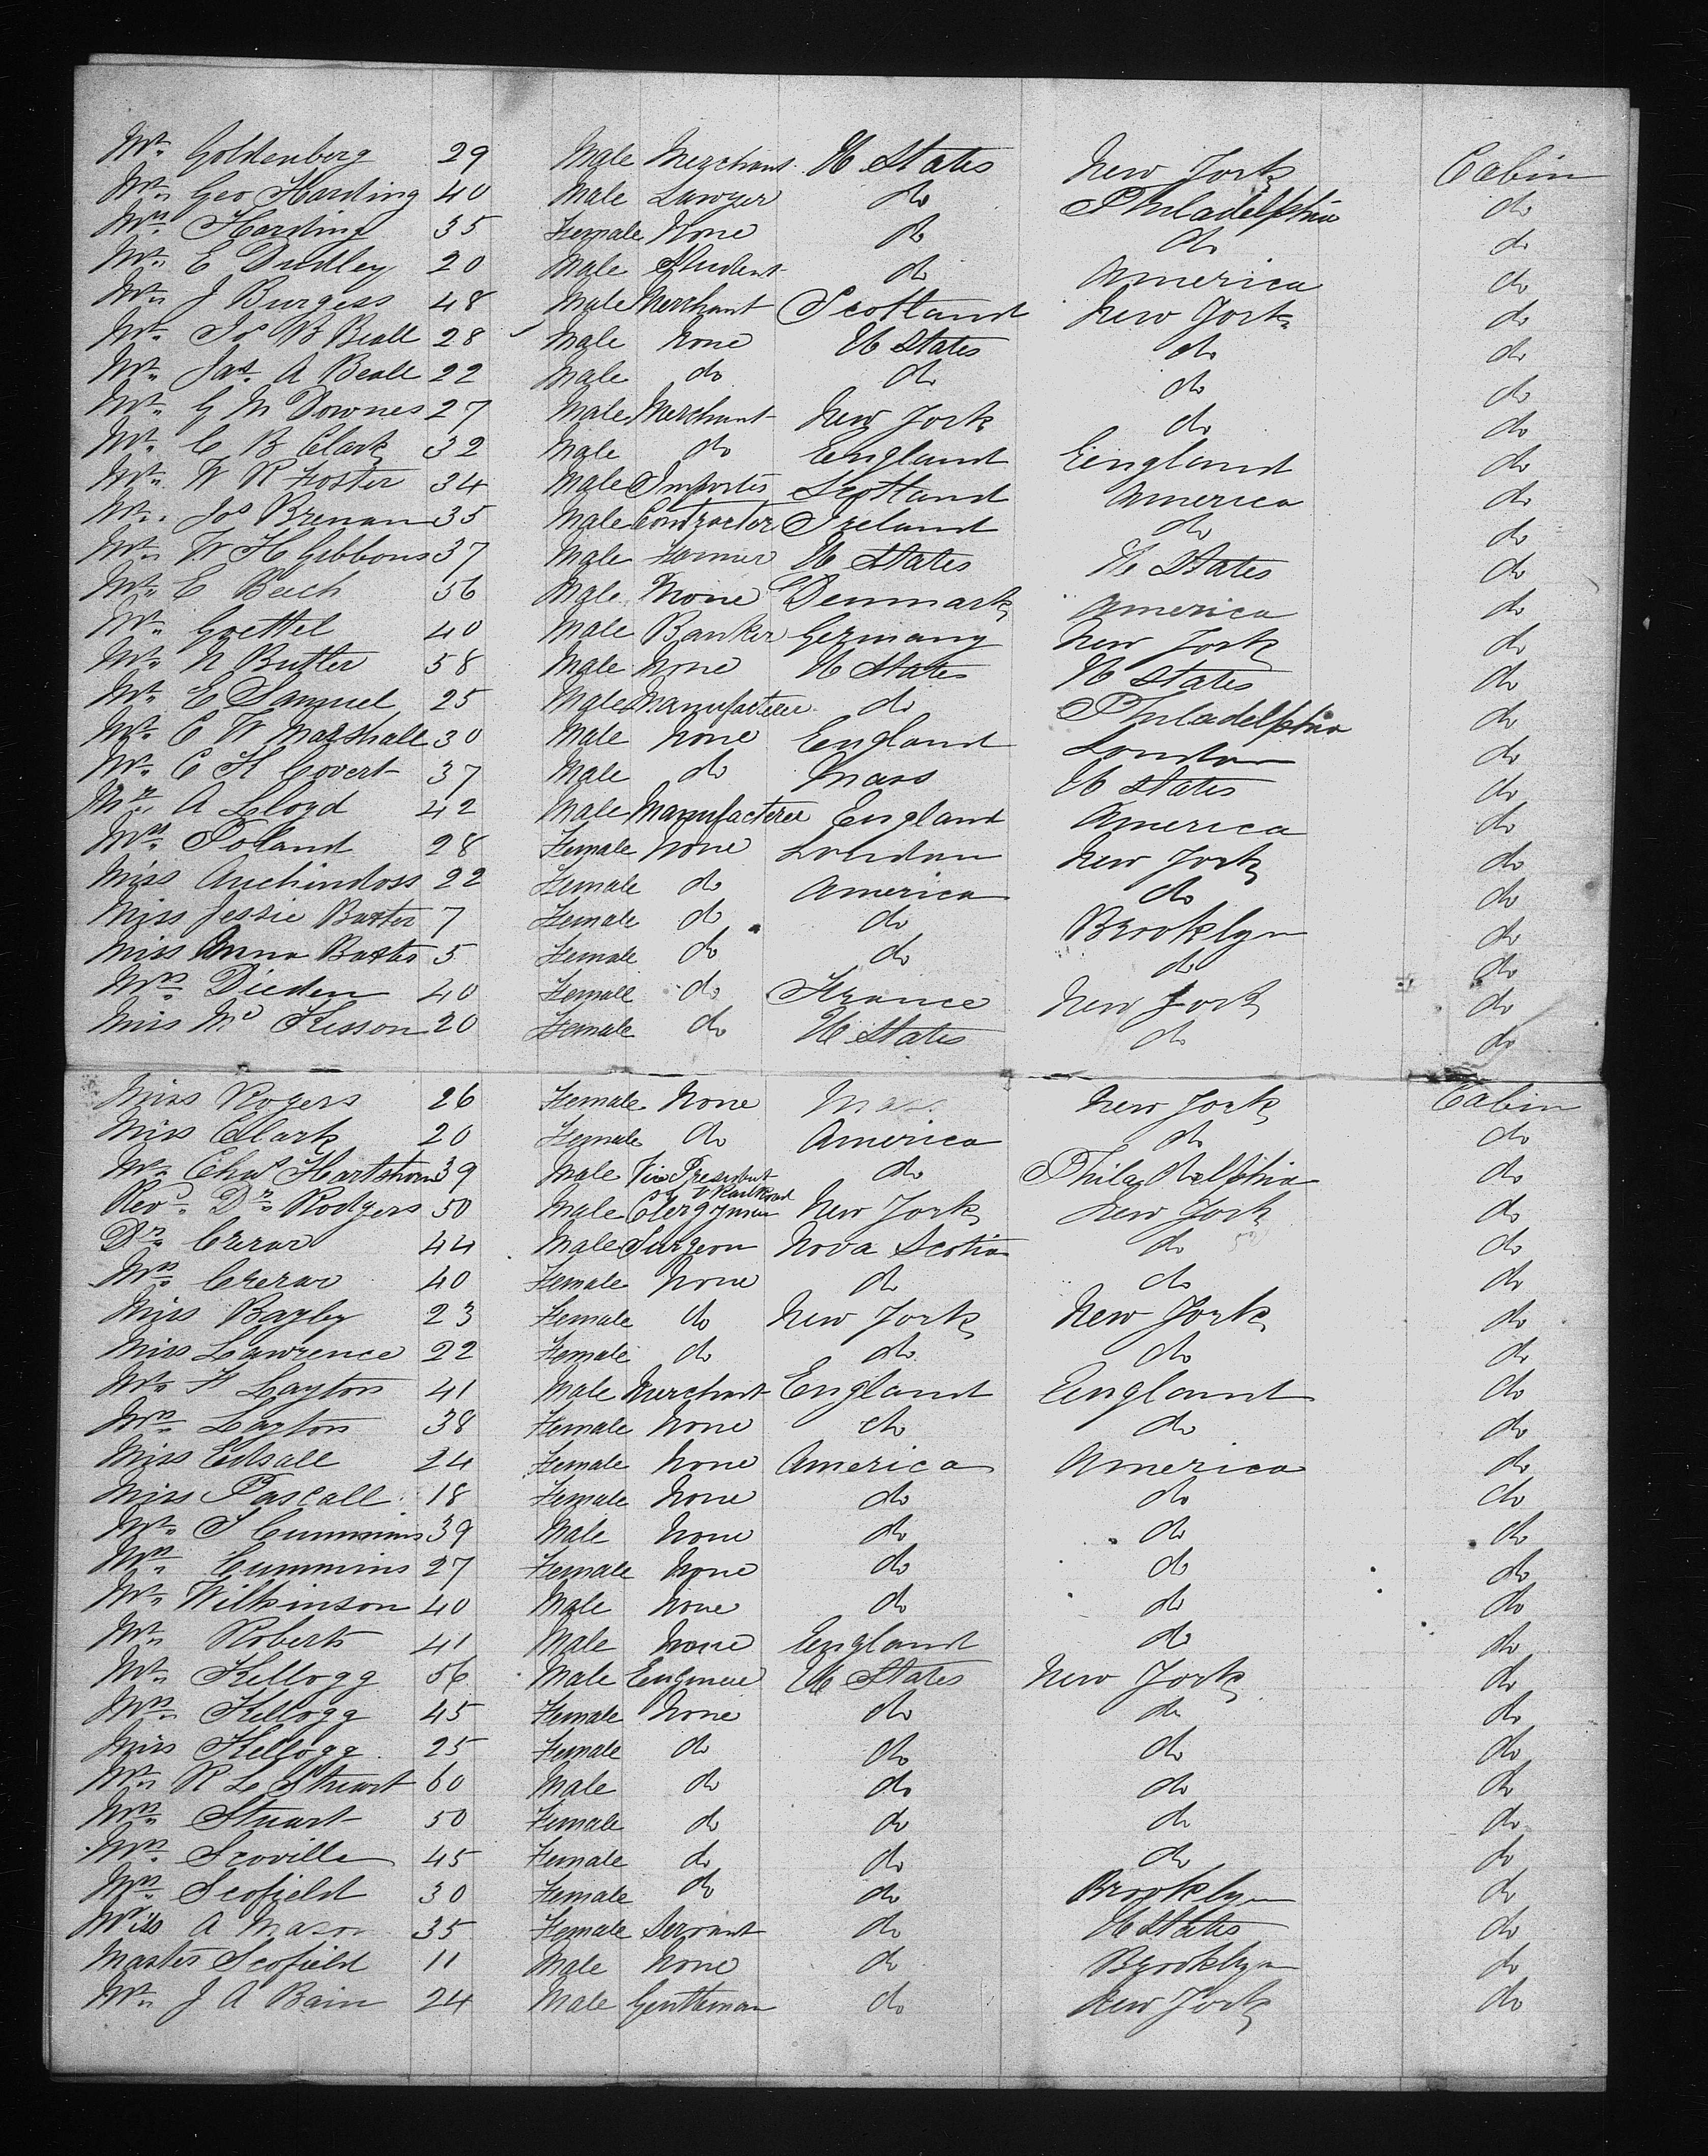 Mr. Goldenberg 29 Male Merchant U States New York Cabin
Mr. Geo Harding 40 Male Lawyer do Philadelphia do
Mrs. Harding 35 Female None do do do
Mr. E Dudley 20 Male Student do America do
Mr. J Burgess 48 Male Merchant Scotland New York do
Mr. Jos B Beall 28 Male None U States do do
Mr. Jas. A Beall 22 Male do do do do
Mr. G M Downes 27 Male Merchant New York do do
Mr. C B Clark 32 Male do England England do
Mr. W R Foster 34 Male Importer Scotland America do
Mr. Jos Brenan 35 Male Contractor Ireland do do
Mr. W H Gibbons 37 Male Farmer U States U States do
Mr. E Bech 36 Male None Denmark America do
Mr. Goettel 40 Male Banker Germany New York do
Mr. N Butler 58 Male None U States U States do
Mr. E Samuel 25 Male Manufacturer do Philadelphia do
Mr. C W Marshall 30 Male None England London do
Mr. C H Covert 37 Male do Mass U States do
Mr. A Lloyd 42 Male Manufacturer England America do
Mrs. Poland 28 Female None London New York do
Miss Auchindoss 22 Female do America do do
Miss Jessie Baxter 7 Female do do Brooklyn do
Miss Anna Baxter 5 Female do do do do
Mrs. Dieden 40 Female do France New York do
Miss Mc Kesson 20 Female do U States do do
Miss Rogers 26 Female None Mass New York Cabin
Miss Clark 20 Female do America do do
Mr. Chas Hartshorn 39 Male Vice President Railroad do Philadelphia do
Revd. Dr. Rodgers 50 Male Clergyman New York New York do
Dr. Crerar 44 Male Surgeon Nova Scotia do do
Mrs. Crerar 40 Female None do do do
Miss Bagley 23 Female do New York New York do
Miss Lawrence 22 Female do do do do
Mr. F Layton 41 Male Merchant England England do
Mrs. Layton 38 Female None do do do
Miss Edsall 24 Female None America America do
Miss Pascall 18 Female None do do do
Mr. T Cummins 39 Male None do do do
Mrs. Cummins 27 Female None do do do
Mr. Wilkinson 40 Male None do do do
Mr. Roberts 41 Male None England do do
Mr. Kellogg 56 Male Engineer U States New York do
Mrs. Kellogg 45 Female None do do do
Miss Kellogg 25 Female do do do do
Mr. R L Stuart 60 Male do do do do
Mrs. Stuart 50 Female do do do do
Mrs. Scoville 45 Female do do do do
Mrs. Scofield 30 Female do do Brooklyn do
Miss A Mason 35 Female Servant do U States do
Master Scofield 11 Male None do Brooklyn do
Mr. J A Bain 24 Male Gentleman do New York do